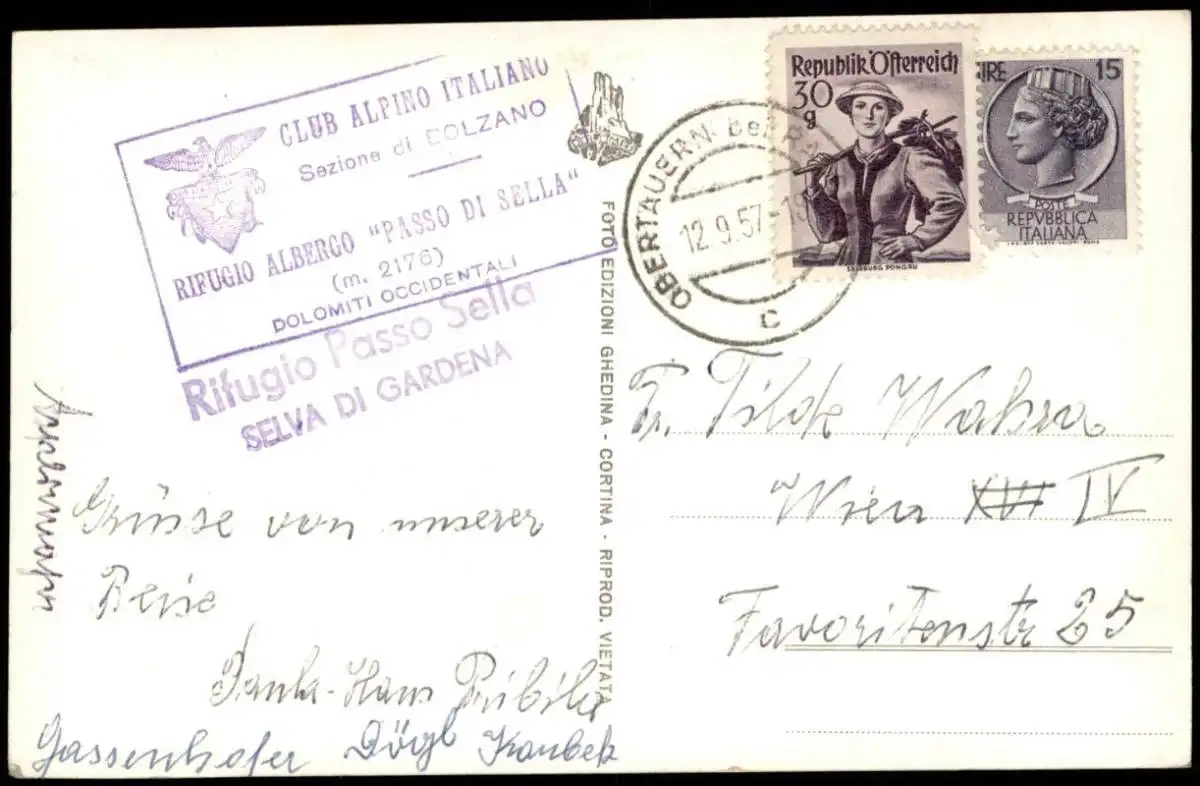 CLUB ALPINO ITALIANO
Sezione di BOLZANO
RIFUGIO ALBERGO "PASSO DI SELLA"
(m. 2176)
DOLOMITI OCCIDENTALI
Rifugio Passo Sella
SELVA DI GARDENA
Grüsse von unserer
Reise
Paula-Hans Pribila
Gassenhofer Dörgl Koubek
FOTO EDIZIONI GHEDINA - CORTINA - RIPROD. VIETATA
OBERTAUERN bei
12.9.57-19
c
Republik Österreich
30
g
SALZBURG PONGAU
IRE 15
POSTE
REPVBBLICA
ITALIANA
Fr. Tilde Wahra
Wien XVII IV
Favoritenstr 25